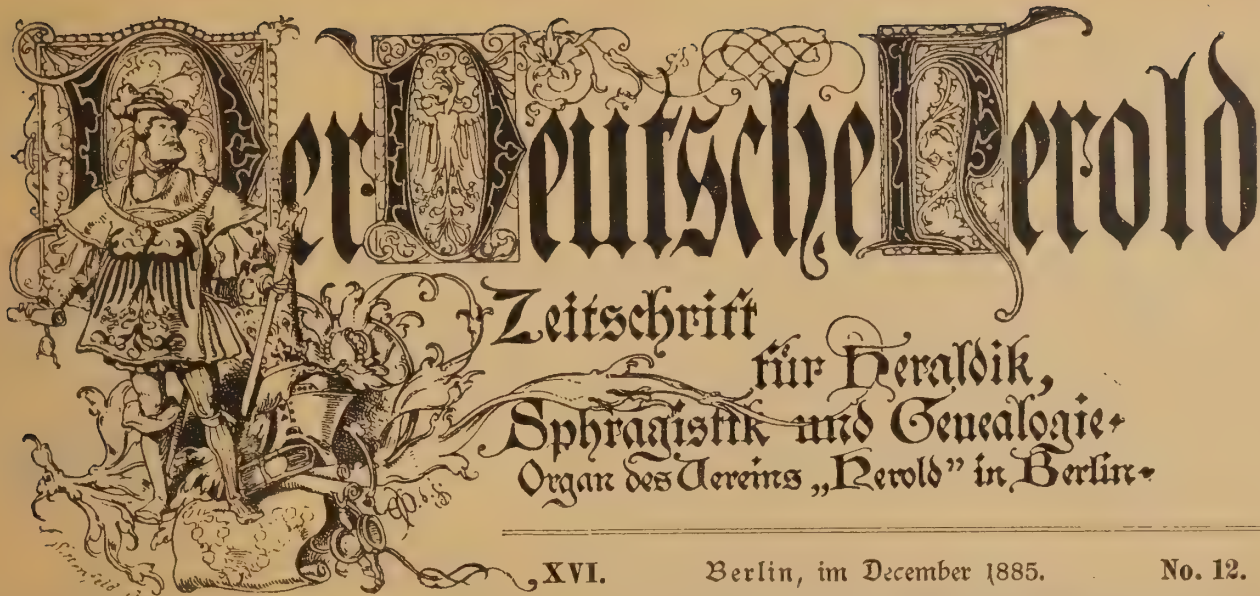 Der Deutsche Herold
Zeitschrift
für Heraldik,
Sphragistik und Genealogie.
Organ des Vereins „Herold” in Berlin.
XVI. Berlin, im December 1885. No. 12.